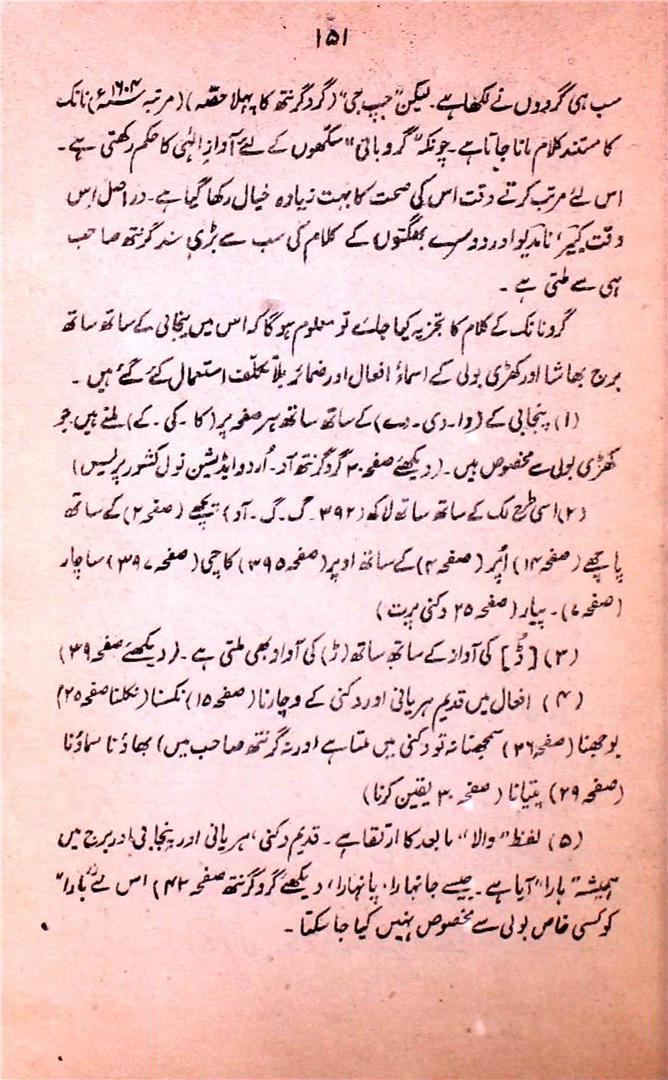 ۱۵۱
سب ہی گرووں نے لکھا ہے۔ لیکن "جپ جی" (گرو گرنتھ کا پہلا حصّہ) (مرتبہ ۱۶۰۴ء) نانک
کا مستند کلام مانا جاتا ہے۔ چونکہ "گروبانی" سکھوں کے لئے آوازِ الٰہی کا حکم رکھتی ہے۔
اس لئے مرتب کرتے وقت اس کی صحت کا بہت زیادہ خیال رکھا گیا ہے۔ دراصل اس
وقت کبیر، نامدیو اور دوسرے بھگتوں کے کلام کی سب سے بڑی سند گرنتھ صاحب
ہی سے ملتی ہے۔
گرونانک کے کلام کا تجزیہ کیا جائے تو معلوم ہوگا کہ اس میں پنجابی کے ساتھ ساتھ
برج بھاشا اور کھڑی بولی کے اسماء افعال اور ضمائر بلا تکلّف استعمال کئے گئے ہیں۔
(۱) پنجابی کے (دا۔ دی۔ دے) کے ساتھ ساتھ ہر صفحہ پر (کا۔ کی۔ کے) ملتے ہیں جو
کھڑی بولی سے مخصوص ہیں۔ (دیکھئے صفحہ ۳۰ گرو گرنتھ آد۔ اُردو ایڈیشن نول کشور پریس)
(۲) اسی طرح لک کے ساتھ ساتھ لاکھ (۳۹۲۔ گ۔ گ۔ آد) پیچھے (صفحہ ۲) کے ساتھ
پاچھے (صفحہ ۱۴) اُپر (صفحہ ۴) کے ساتھ اوپر (صفحہ ۳۹۵) کاچی (صفحہ ۳۹۷) ساچار
(صفحہ ۷)۔ پیار (صفحہ ۲۵ دکنی پریت)
(۳) [ڈ] کی آواز کے ساتھ ساتھ (ڑ) کی آواز بھی ملتی ہے۔ (دیکھئے صفحہ ۳۹)
(۴) افعال میں قدیم ہریانی اور دکنی کے وچارنا (صفحہ ۱۵) نکسنا (نکلنا صفحہ ۲۵)
بوجھنا (صفحہ ۳۶) سمجھنا نہ تو دکنی میں ملتا ہے اور نہ گرنتھ صاحب میں) بھاونا سماونا
(صفحہ ۲۹) پتیانا (صفحہ ۳۰ یقین کرنا)
(۵) لفظ "والا" مابعد کا ارتقا ہے۔ قدیم دکنی، ہریانی اور پنجابی اور برج میں
ہمیشہ "ہارا" آیا ہے۔ جیسے جانہارا، پانہارا، دیکھئے گرو گرنتھ صفحہ ۴۲) اس لئے "ہارا"
کو کسی خاص بولی سے مخصوص نہیں کیا جا سکتا۔